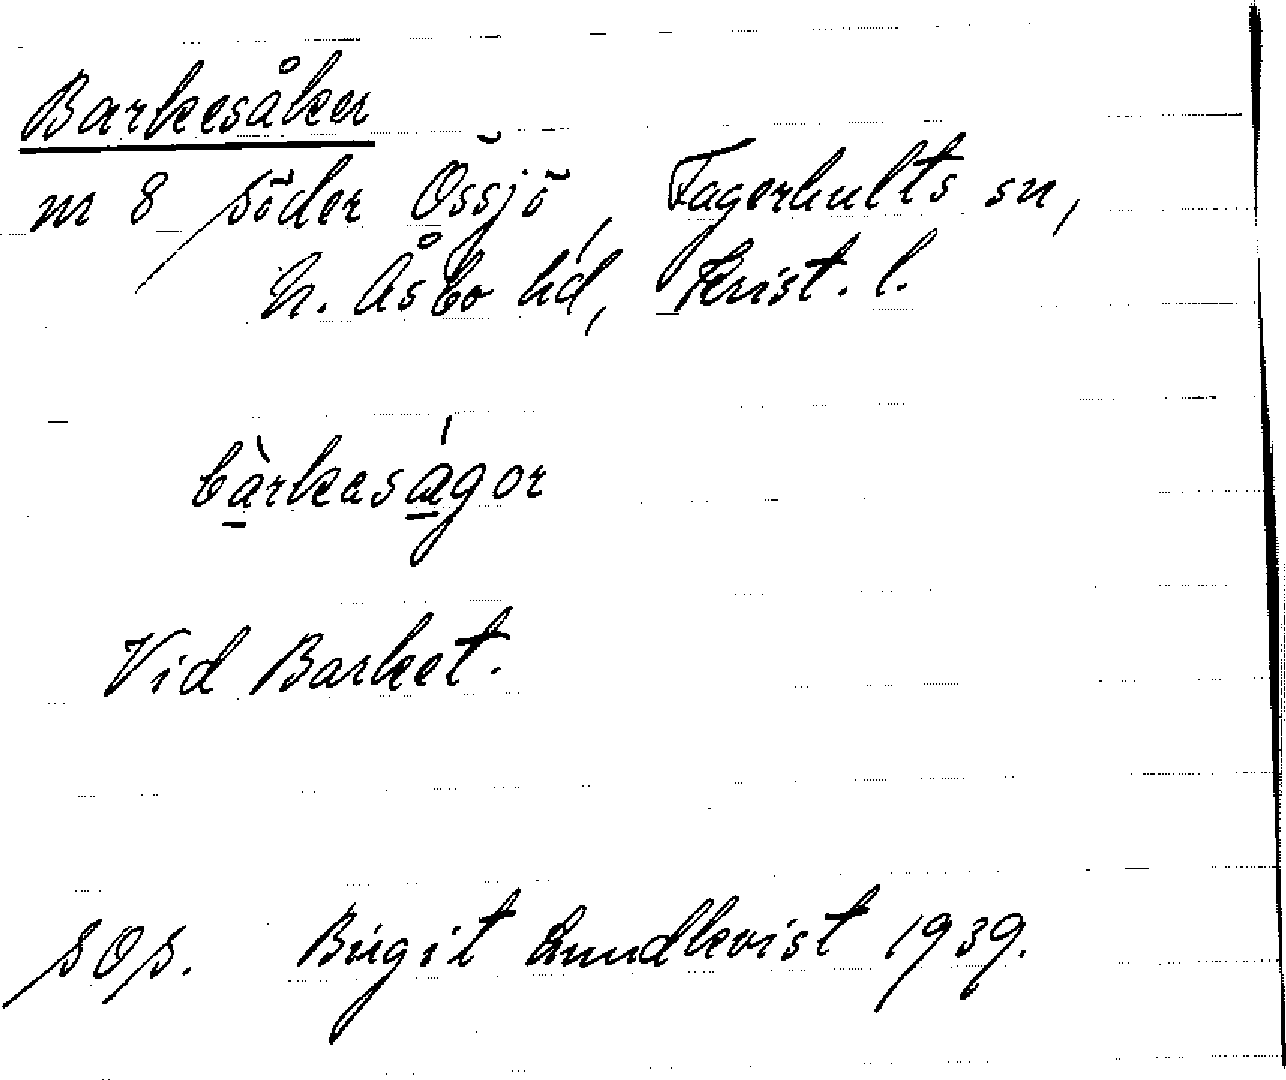 Barkesåker
m 8 Söder Össjö, Fagerhults sn,
N. Åsbo hd, Krist. l.
bàrkaságor
Vid Barket.
SOS. Birgit Lundkvist 1939.